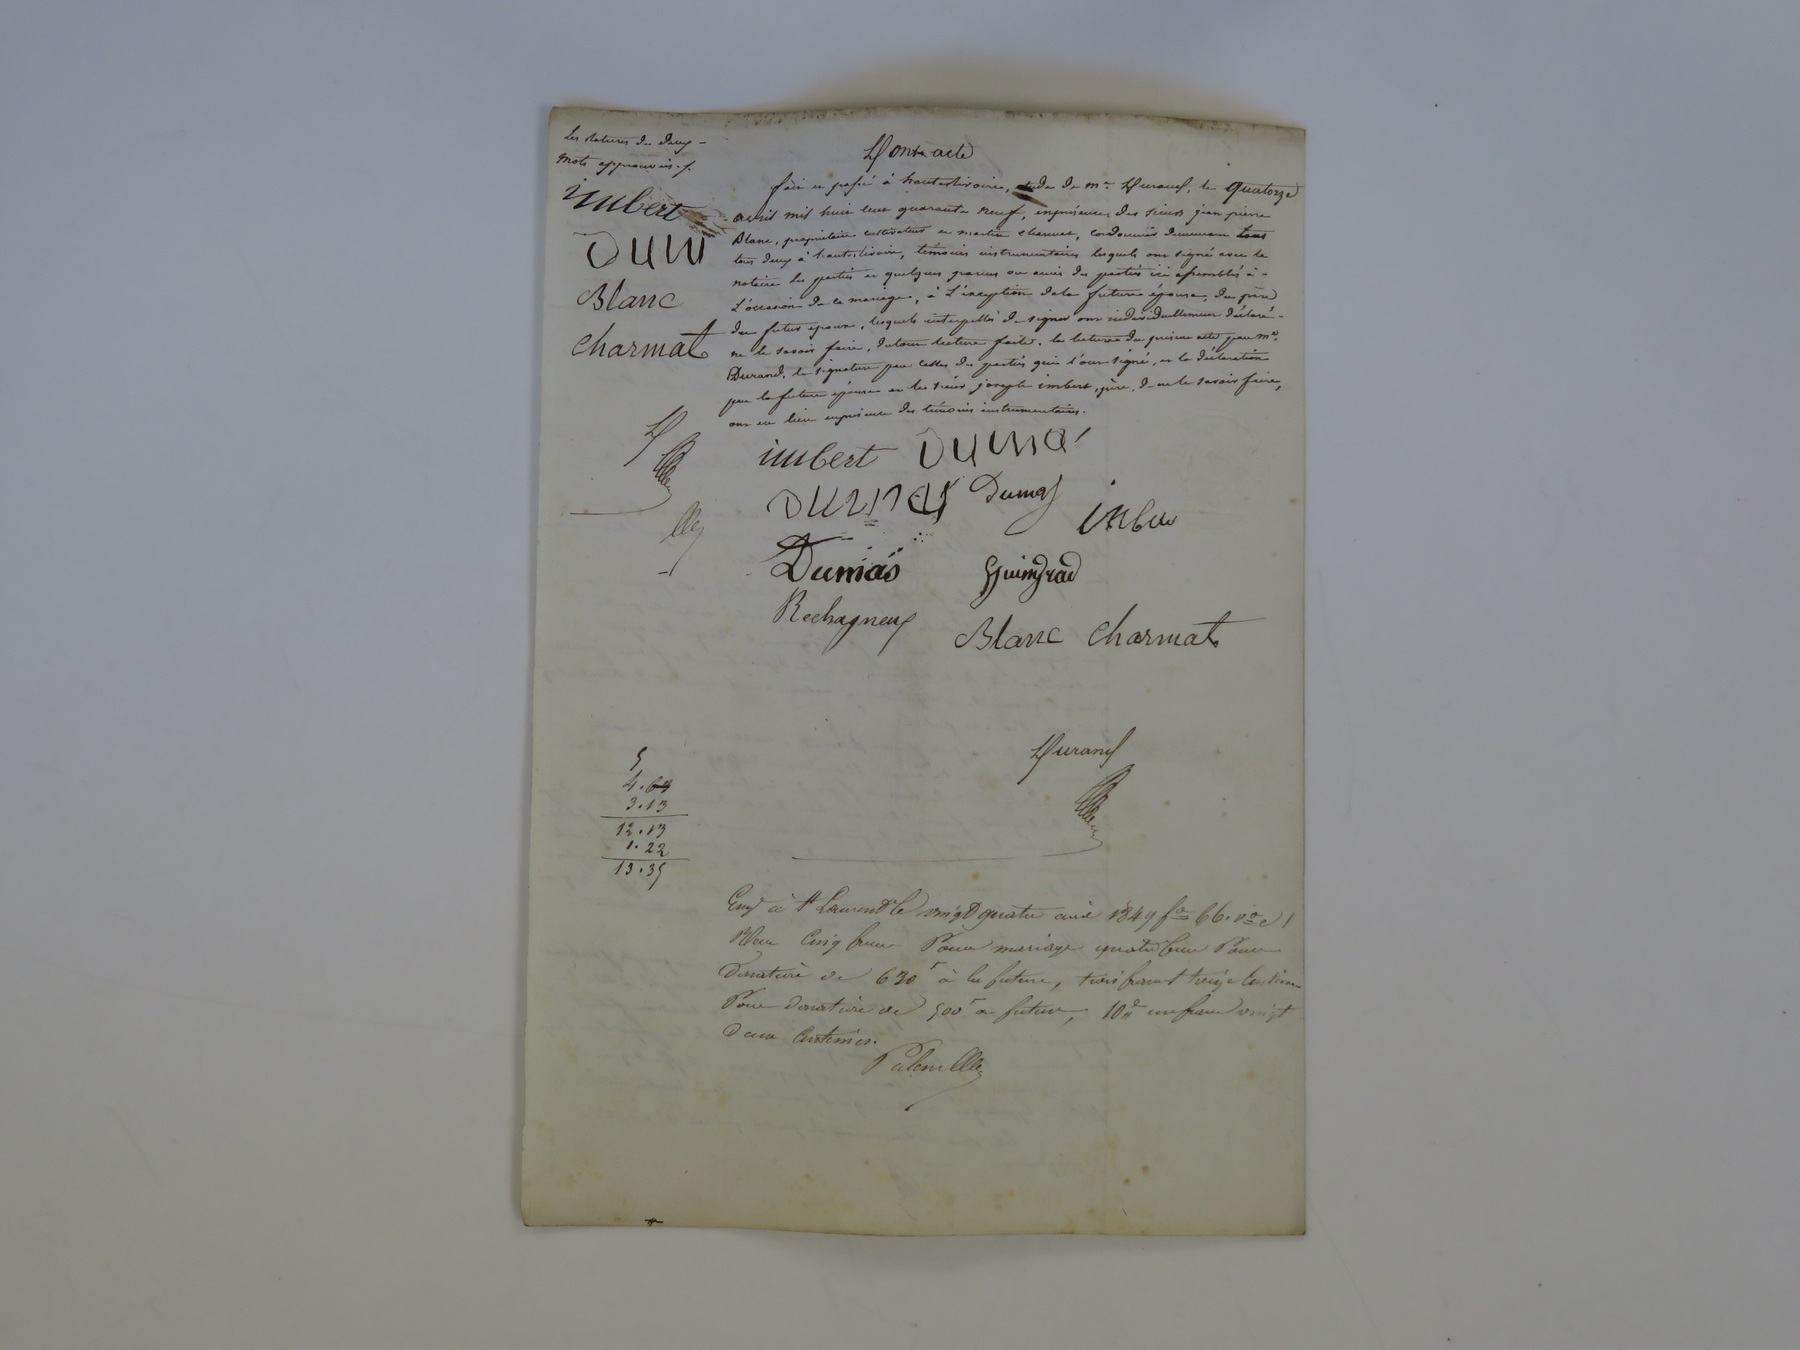 Les ratures de deux
mots approuvés.
imbert
Dum
Blanc
Charmat
Dont acte
fait et passé à hauterivoire, étude de me Durand, le quatorze
avril mil huit cent quarante neuf, en présence des sieurs jean pierre
Blanc, propriétaire cultivateur et martin charmat, cordonnier demeurant tous
tous deux à hauterivoire, témoins instrumentaires lesquels ont signé avec le
notaire les parties et quelques parens ou amis des parties ici assemblés à
l'occasion de ce mariage, à l'exception de la future épouse, du père
du futur époux, lesquels interpellés de signer ont individuellement déclaré
ne le savoir faire, du tout lecture faite. la lecture du présent acte par me
Durand, la signature par celles des parties qui l'ont signé, et la déclaration
par la future épouse et le sieur joseph imbert, père, de ne le savoir faire,
ont eu lieu en présence des témoins instrumentaires.
D
imbert Duma
Dumas Dumas
imber
Dumas Guingrad
Rechagneux
Blanc Charmat
Durand
5
4.64
3.13
12.13
1.22
13.35
Eng à St Laurent le vingt quatre avril 1849 fo 66. vo c 1
Reçu Cinq francs Pour mariage quatre francs Pour
Donation de 630 f à la future, trois francs treize centimes
Pour donation de 500 f au futur, 10e un franc vingt
Deux Centimes.